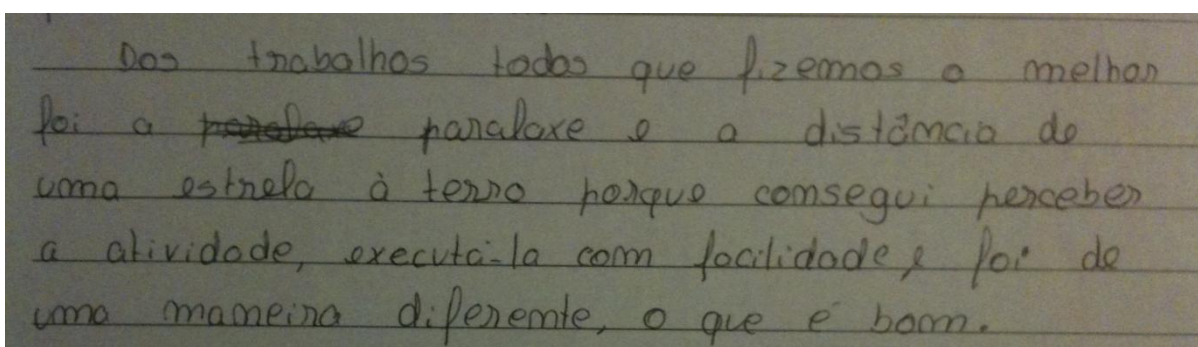 Dos trabalhos todos que fizemos o melhor
foi a paralaxe paralaxe e a distância de
uma estrela à terra porque consegui perceber
a atividade, executá-la com facilidade e foi de
uma maneira diferente, o que é bom.